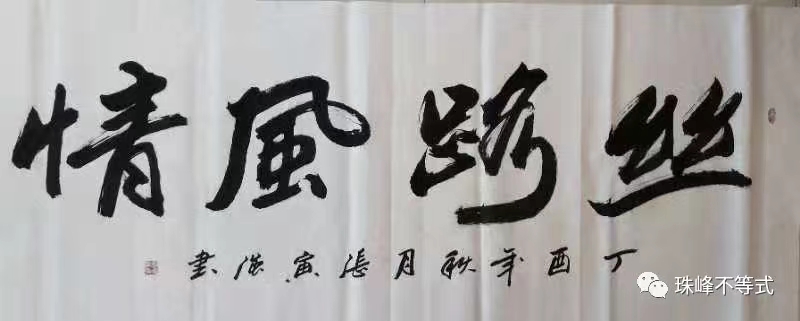 丝路風情
丁酉年秋月張寅書
珠峰不等式